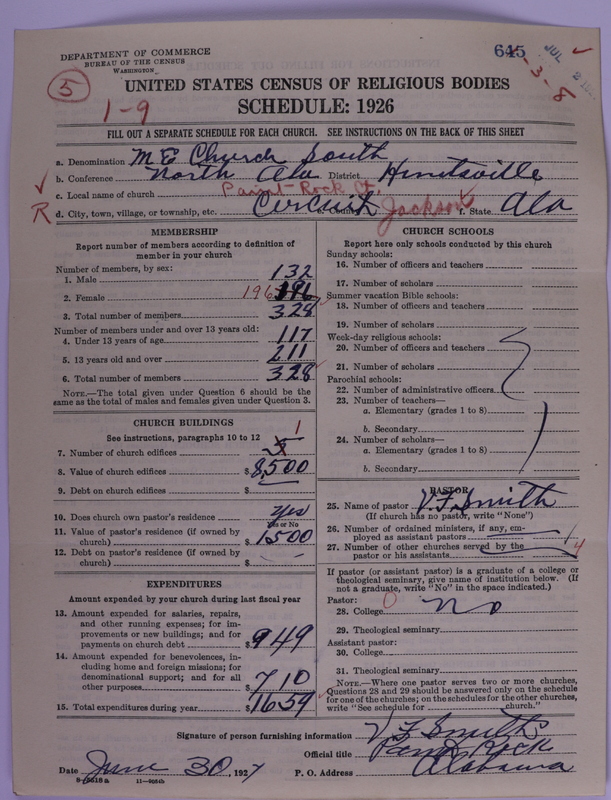 DEPARTMENT OF COMMERCE
BUREAU OF THE CENSUS
WASHINGTON
645
JUL
-3-8
5
1-9
UNITED STATES CENSUS OF RELIGIOUS BODIES
SCHEDULE: 1926
FILL OUT A SEPARATE SCHEDULE FOR EACH CHURCH. SEE INSTRUCTIONS ON THE BACK OF THIS SHEET
a. Denomination M E Church South
b. Conference North Ala District Huntsville
c. Local name of church Paint-Rock Ct.
R d. City, town, village, or township, etc. Circuit e. County Jackson f. State Ala
MEMBERSHIP
Report number of members according to definition of member in your church
Number of members, by sex:
1. Male 132
2. Female 196 196
3. Total number of members 328
Number of members under and over 13 years old:
4. Under 13 years of age 117
5. 13 years old and over 211
6. Total number of members 328
NOTE.—The total given under Question 6 should be the same as the total of males and females given under Question 3.
CHURCH BUILDINGS
See instructions, paragraphs 10 to 12
7. Number of church edifices 5 1
8. Value of church edifices $ 8,500
9. Debt on church edifices $
10. Does church own pastor's residence Yes
Yes or No
11. Value of pastor's residence (if owned by church) $ 1500
12. Debt on pastor's residence (if owned by church) $
EXPENDITURES
Amount expended by your church during last fiscal year
13. Amount expended for salaries, repairs, and other running expenses; for improvements or new buildings; and for payments on church debt $ 949
14. Amount expended for benevolences, including home and foreign missions; for denominational support; and for all other purposes $ 710
15. Total expenditures during year $ 1659
CHURCH SCHOOLS
Report here only schools conducted by this church
Sunday schools:
16. Number of officers and teachers
17. Number of scholars
Summer vacation Bible schools:
18. Number of officers and teachers
19. Number of scholars
Week-day religious schools:
20. Number of officers and teachers
21. Number of scholars
Parochial schools:
22. Number of administrative officers
23. Number of teachers—
a. Elementary (grades 1 to 8)
b. Secondary
24. Number of scholars—
a. Elementary (grades 1 to 8)
b. Secondary
PASTOR
25. Name of pastor V. F. Smith
(If church has no pastor, write "None")
26. Number of ordained ministers, if any, employed as assistant pastors
27. Number of other churches served by the pastor or his assistants 4
If pastor (or assistant pastor) is a graduate of a college or theological seminary, give name of institution below. (If not a graduate, write "No" in the space indicated.)
Pastor: 0
28. College no
29. Theological seminary
Assistant pastor:
30. College
31. Theological seminary
NOTE.—Where one pastor serves two or more churches, Questions 28 and 29 should be answered only on the schedule for one of the churches; on the schedules for the other churches, write "See schedule for church."
Signature of person furnishing information V F Smith
Official title Paint Rock
Date June 30, 1927 P. O. Address Alabama